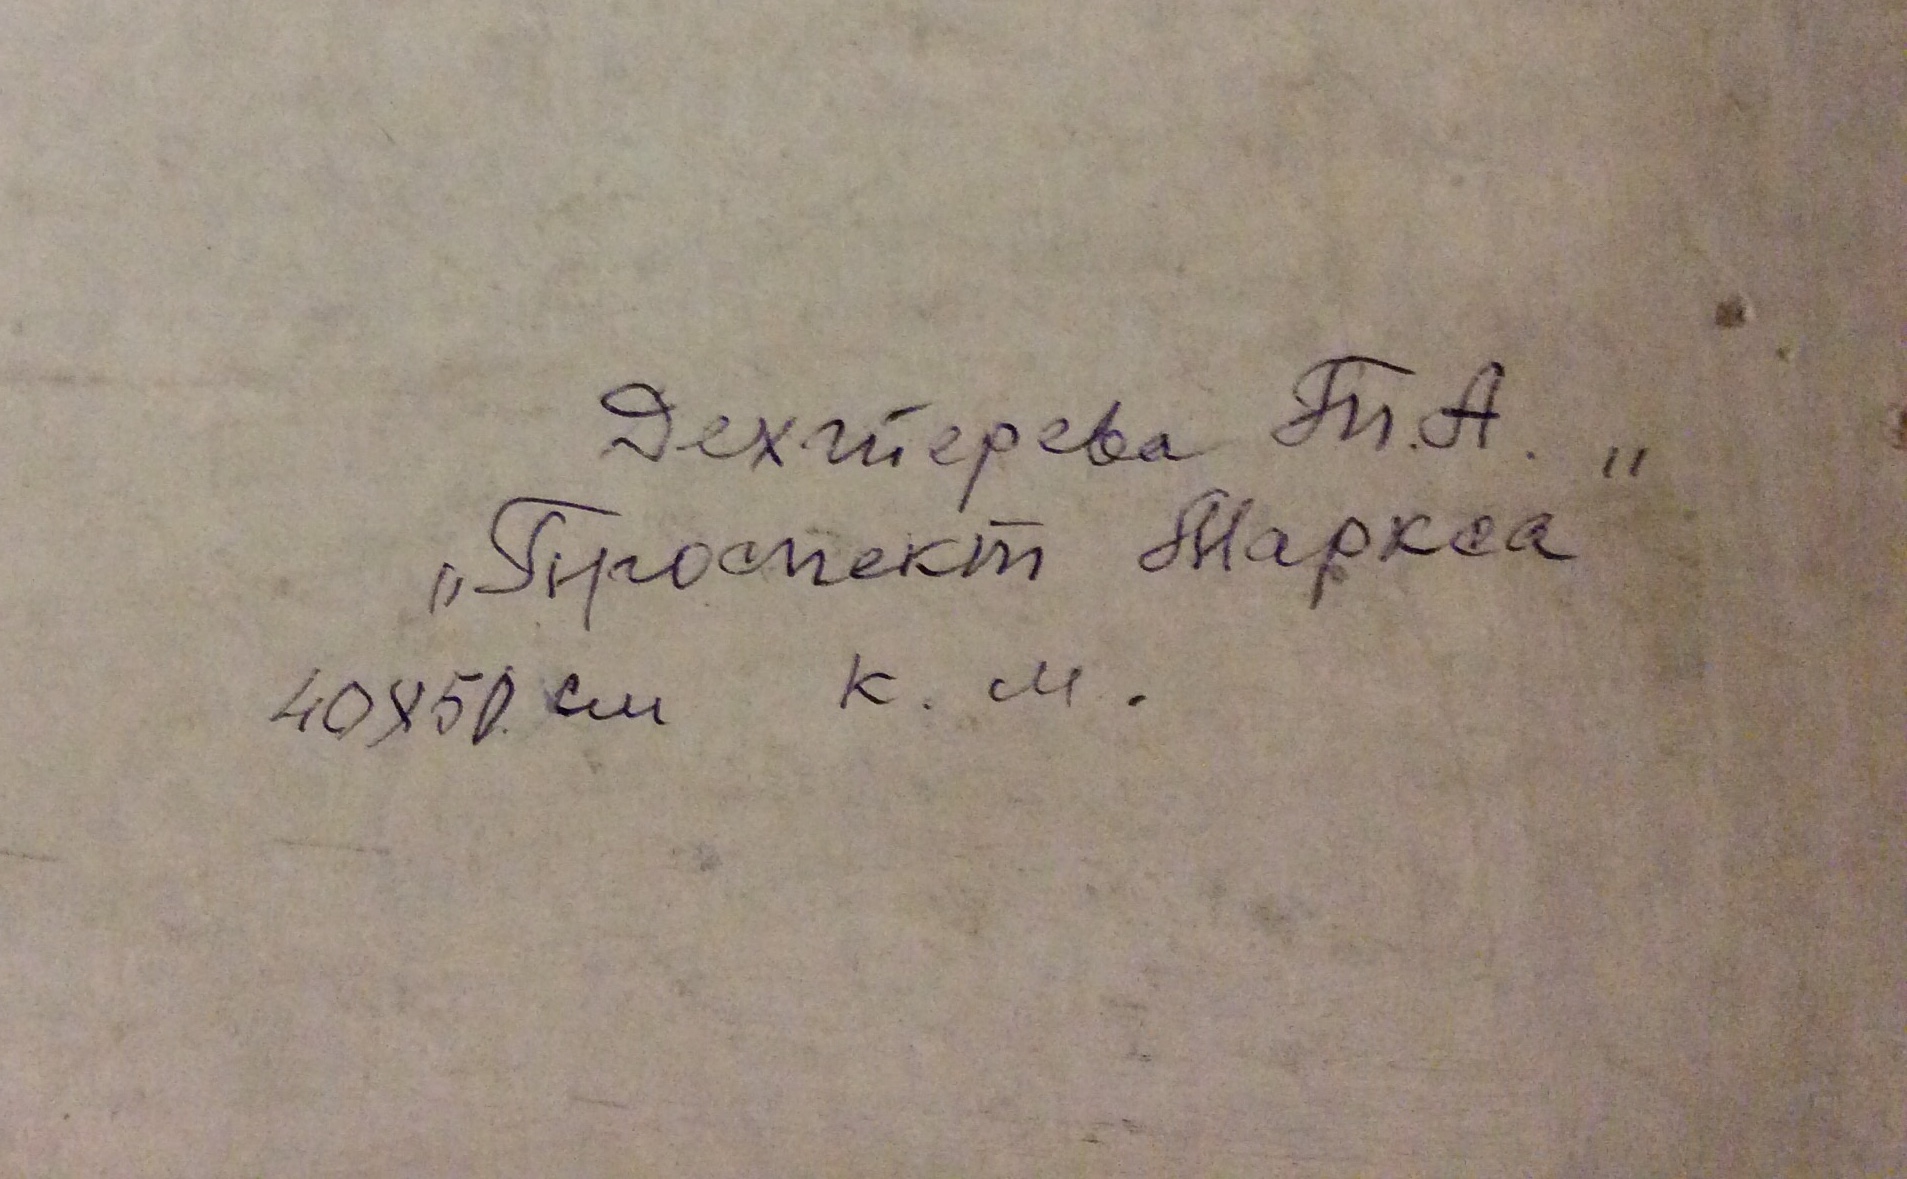 Дехтерева Т.А.
„Проспект Маркса”
40х50 см к. м.